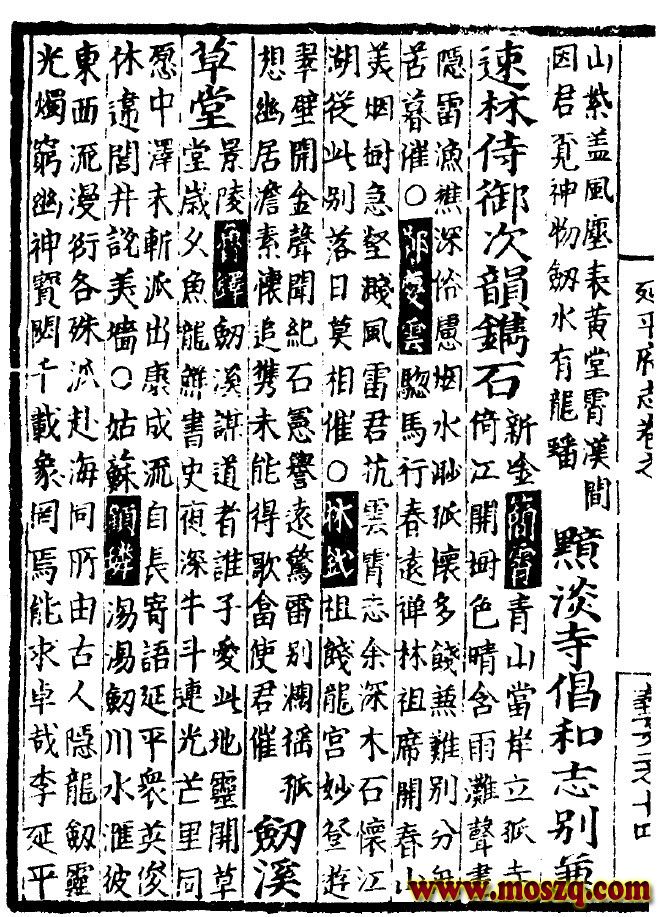 山紫盖風塵表黃堂霄漢間
因君覓神物劒水有龍蟠
黯淡寺倡和志別兼
速林侍御次韻鐫石
新金簡霄青山當岸立孤寺
倚江開樹色晴含雨灘聲晝
隱雷漁樵深俗慮烟水眇孤懷多餞兼難別分無
苦暮催○鄭慶雲驄馬行春遠禅林祖席開春山
美烟樹急壑淺風雷君抗雲霄志余深木石懷江
湖從此別落日莫相催○林釴祖餞龍宮妙登遊
翠壁開金聲聞紀石譽遠驚雷別櫂搖孤
想幽居澹素懷追携未能得歌畣使君催
劒溪
草堂
景陵魯鐸劒溪謀道者誰子愛此地靈開草
堂歲久魚龍鮮書史夜深牛斗連光芒里同
中澤未斬派出康成流自長寄語延平衆英俊
休違閭井說美墻○姑蘇顧璘湯湯劒川水滙彼
東西流漫衍各殊派赴海同所由古人隱龍劒靈
光燭窮幽神寶閟千載象罔焉能求卓哉李延平
延平府志卷之
十四
www.moszq.com